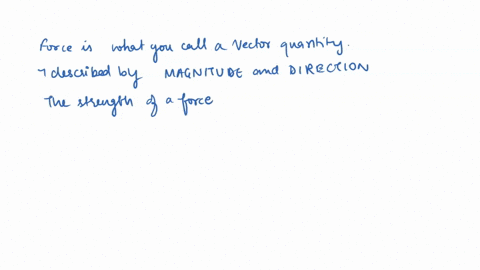 Force is what you call a Vector quantity.
→ described by MAGNITUDE and DIRECTION
The strength of a force